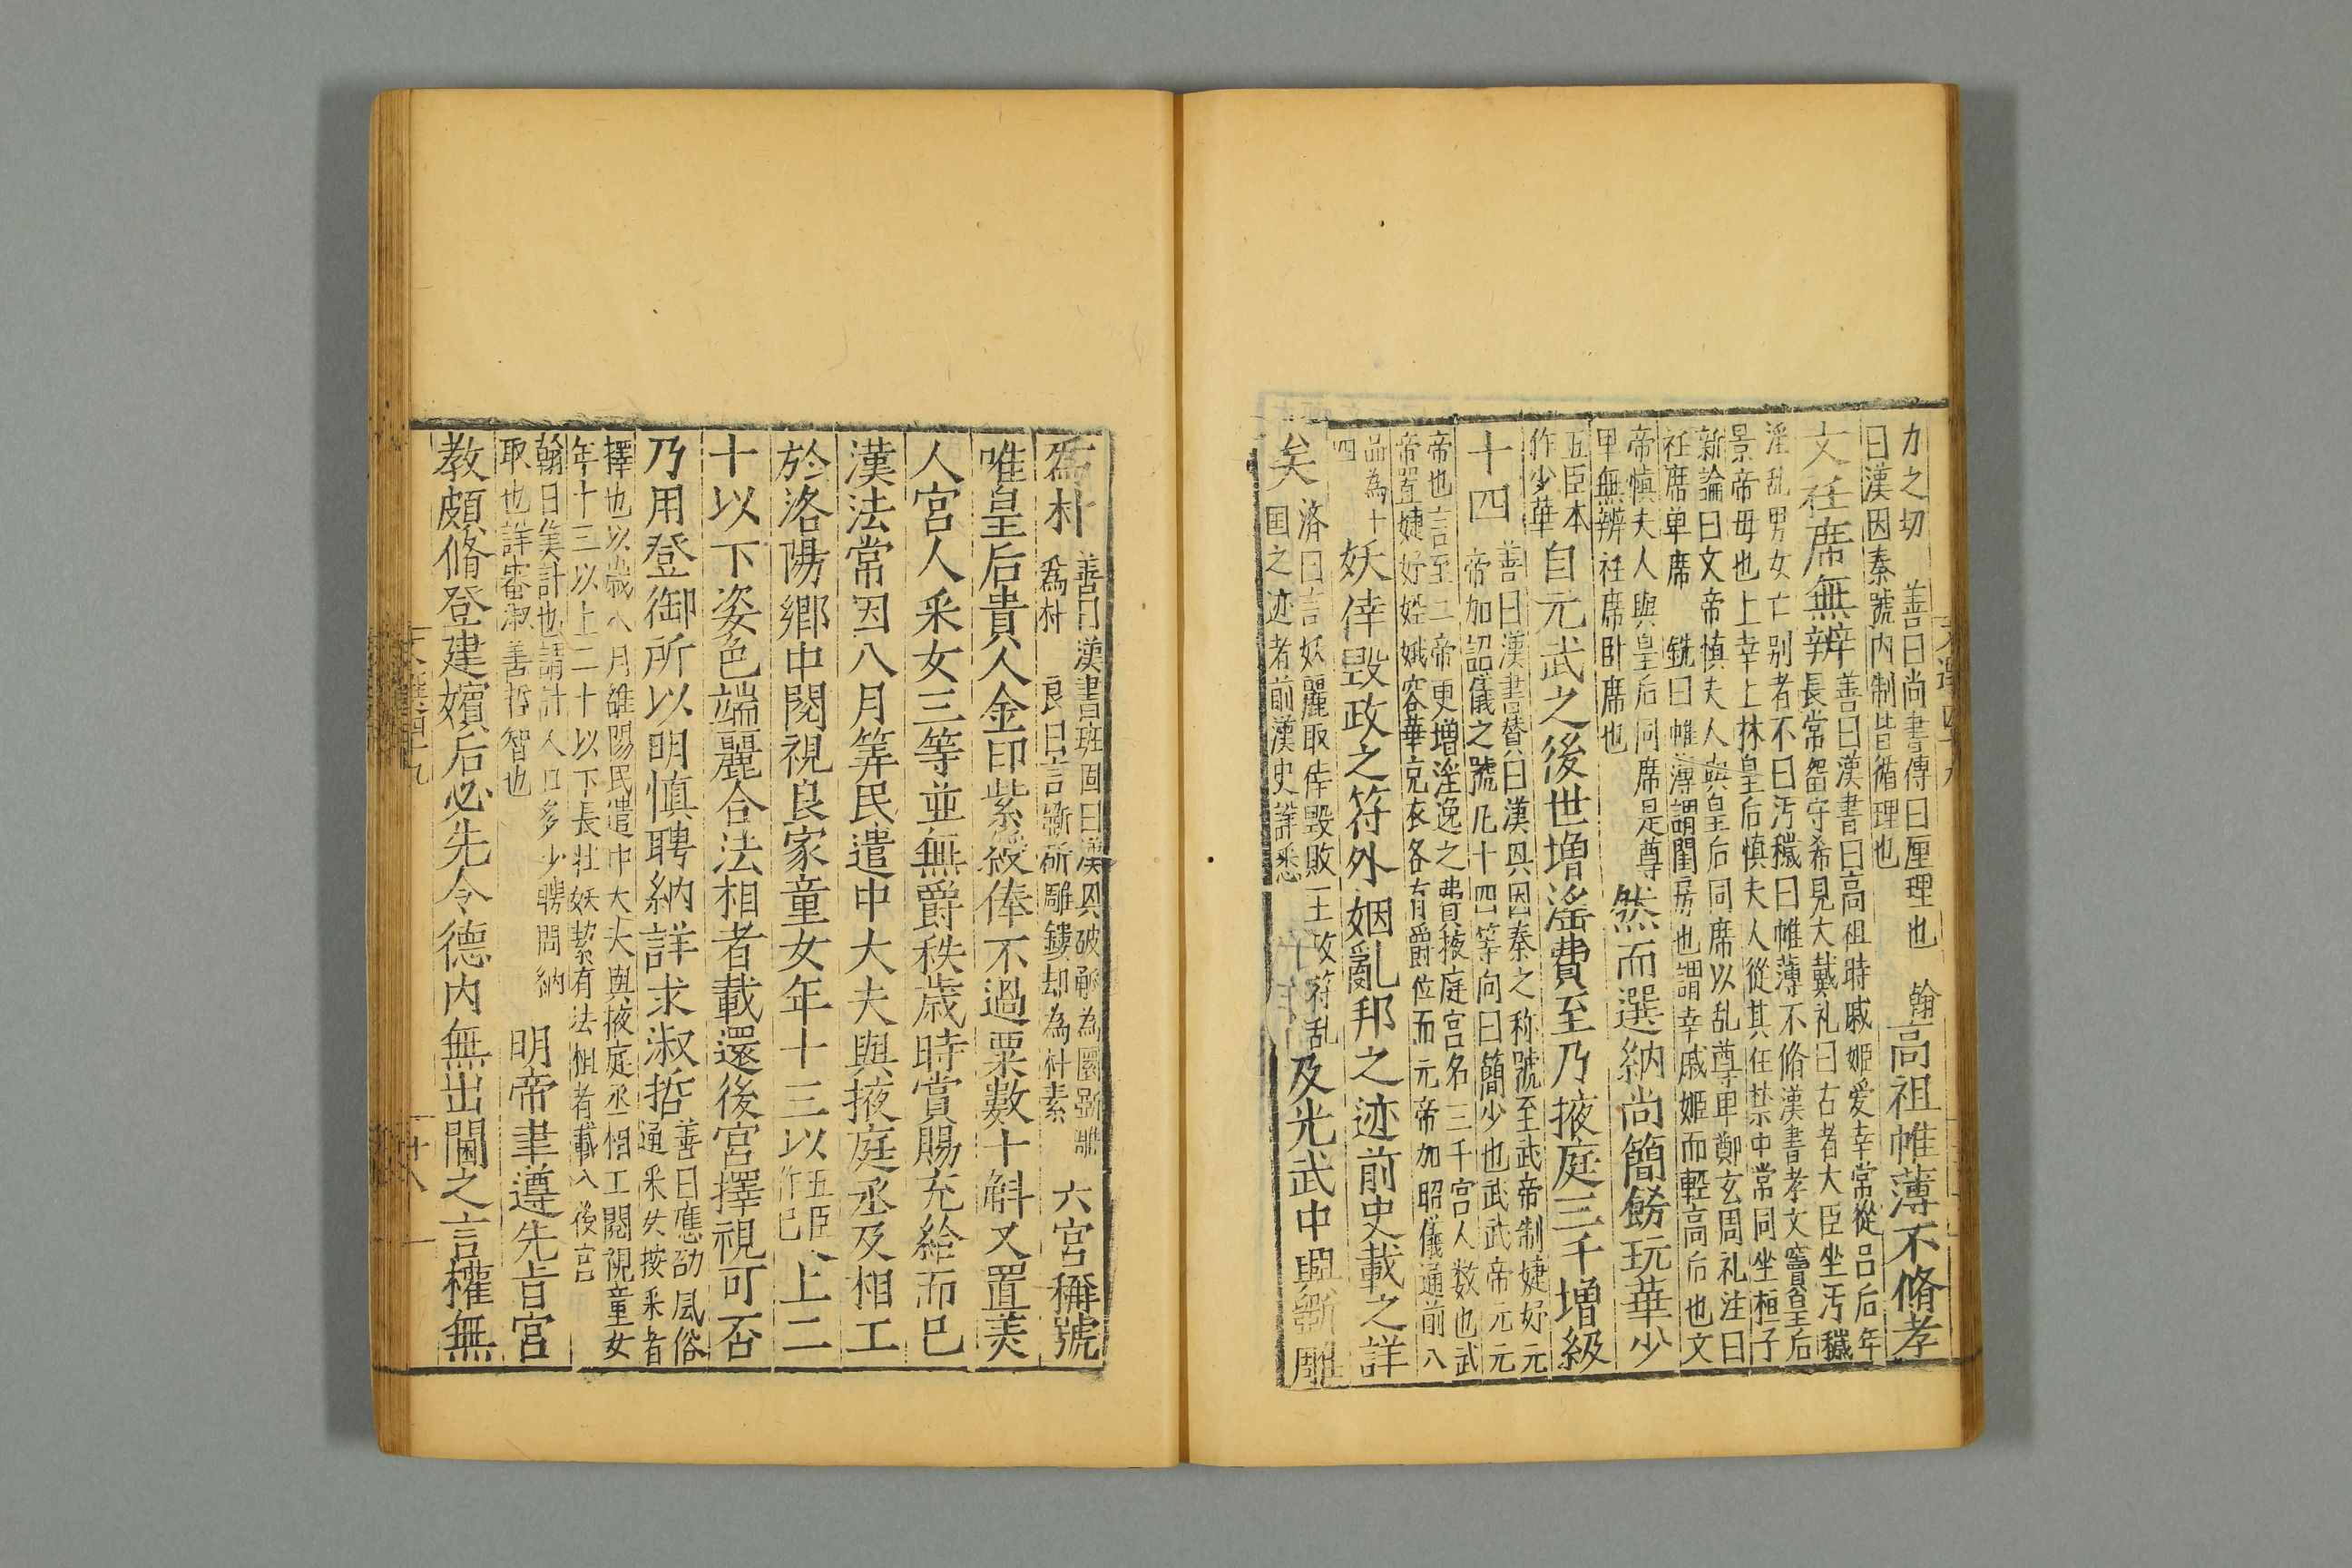 力之切　善曰尚書傳曰厘理也　翰
曰漢因秦號内制皆循理也
高祖帷薄不脩孝
文衽席無辨
善曰漢書曰高祖時戚姬爱幸常從吕后年
長常畱守希見大戴礼曰古者大臣坐汚穢
淫乱男女亡别者不曰汚穢曰帷薄不脩漢書孝文竇皇后
景帝母也上幸上林皇后慎夫人從其在禁中常同坐桓子
新論曰文帝慎夫人與皇后同席以乱尊卑鄭玄周礼注曰
衽席单席　銑曰帷薄謂閨房也謂幸戚姬而輕高后也文
帝慎夫人與皇后同席是尊
卑無辨衽席卧席也
然而選納尚簡餝玩華少
五臣本
作少華
自元武之後世増滛費至乃掖庭三千増級
十四
善曰漢書賛曰漢興因秦之称號至武帝制婕妤元
帝加詔儀之號凡十四等向曰簡少也武武帝元元
帝也言至二帝更増淫逸之費掖庭宫名三千宫人数也武
帝置婕妤娙娥容華充衣各有爵位而元帝加昭儀通前八
品為十
四
妖倖毀政之符外姻亂邦之迹前史載之詳
矣
济曰言妖麗取倖毀敗王政符乱
国之迹者前漢史詳悉
及光武中興斵雕
爲朴
善曰漢書班固曰漢興破觚為圜斵雕
爲朴　良曰言斵斫雕鏤却為朴素
六宮稱號
唯皇后貴人金印紫綬俸不過粟數十斛又置美
人宮人采女三等並無爵秩歳時賞賜充給而已
漢法常因八月筭民遣中大夫與掖庭丞及相工
於洛陽鄉中閱視良家童女年十三以
五臣
作已
上二
十以下姿色端麗合法相者載還後宮擇視可否
乃用登御所以明慎聘納詳求淑哲
善曰應劭風俗
通采女按采者
擇也以歳八月雒陽民遣中大夫與掖庭丞相工閱視童女
年十三以上二十以下長壮妖絜有法相者載入後宫
翰曰筭計也謂計人口多少聘問納
取也詳審淑善哲智也
明帝聿遵先旨宮
教頗脩登建嬪后必先令德内無出閫之言權無